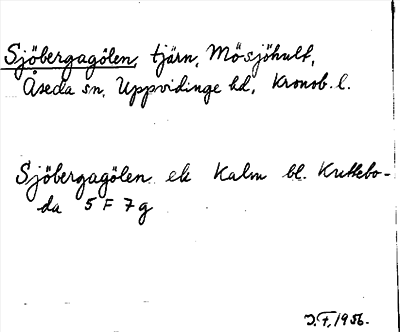 Sjöbergagölen, tjärn, Mösjöhult,
Åseda sn, Uppvidinge hd, Kronob. l.
Sjöbergagölen ek Kalm bl. Kruttebo-
da 5 F 7 g
J.F, 1956.